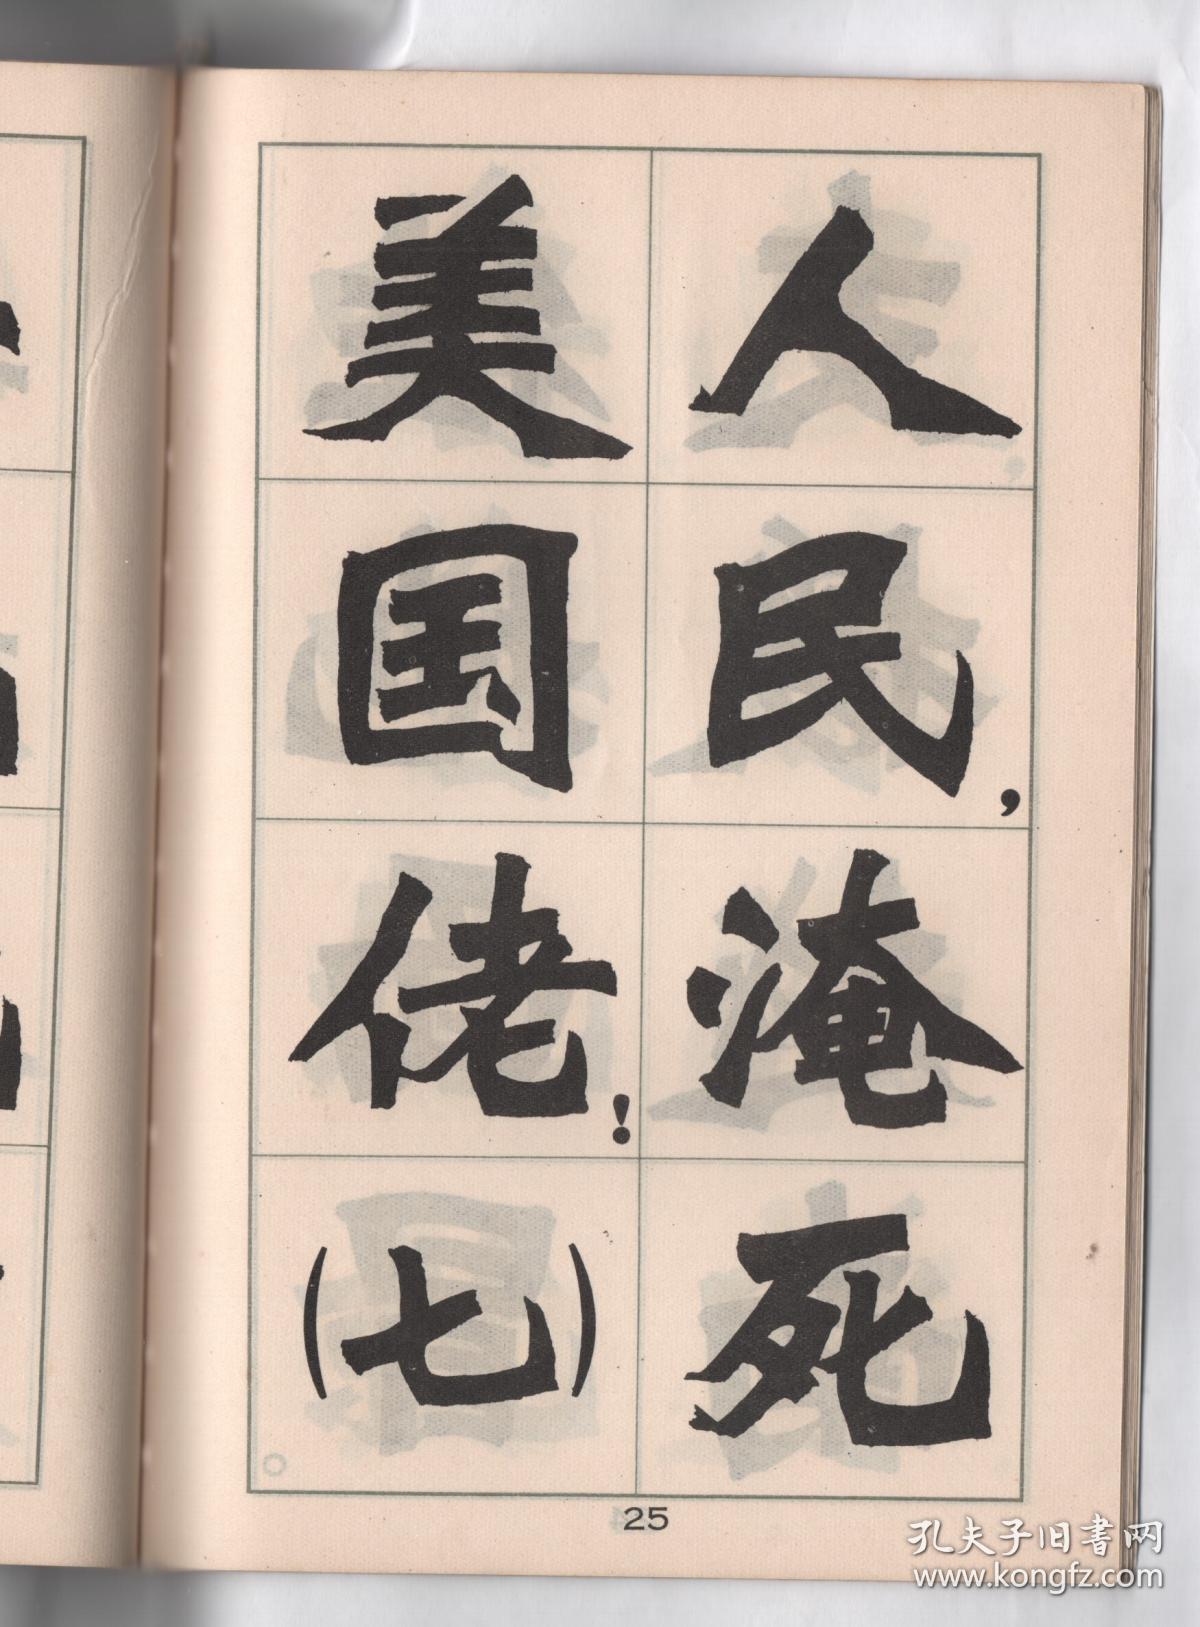 人民，淹死
美国佬！（七）
25
孔夫子旧书网
www.kongfz.com